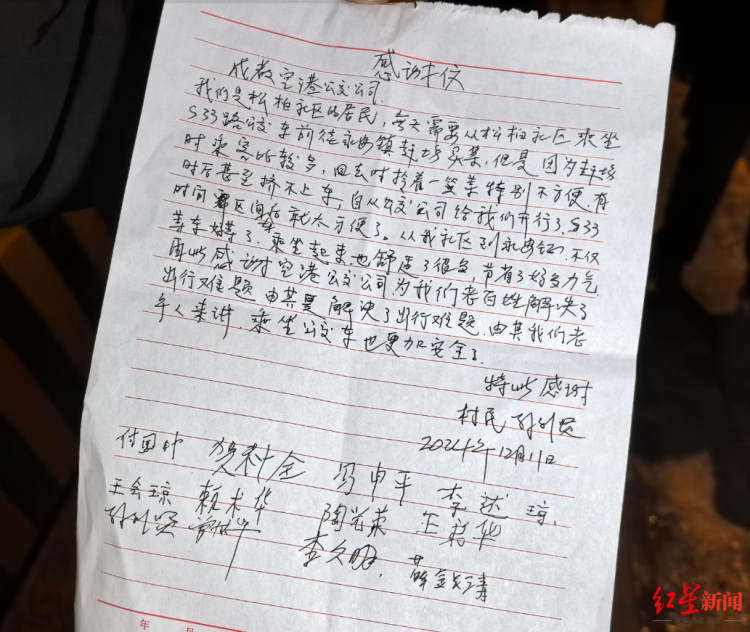 感谢信
成都空港公交公司
我们是松柏社区的居民，每天需要从松柏社区乘坐
S33路公交车前往永安镇赶场买菜，但是因为赶场
时乘客比较多，回去时拎着一篮菜特别不方便，有
时后甚至挤不上车，自从公交公司给我们开行了S33
区间后就太方便了。从我社区到永安镇，不仅
等车
时间
好等了，乘坐起来也舒适了很多，节省了好多力气
因此感谢空港公交公司为我们老百姓解决了
出行难题，由其是解决了出行难题，由其我们老
年人来讲，乘坐公交车也更加安全了。
特此感谢
村民
2024年12月11日
付田
贺未全
冯申平
李述琼
王会琼
赖木华
陶光荣
王蓉华
李久明
薛
年 月
红星新闻